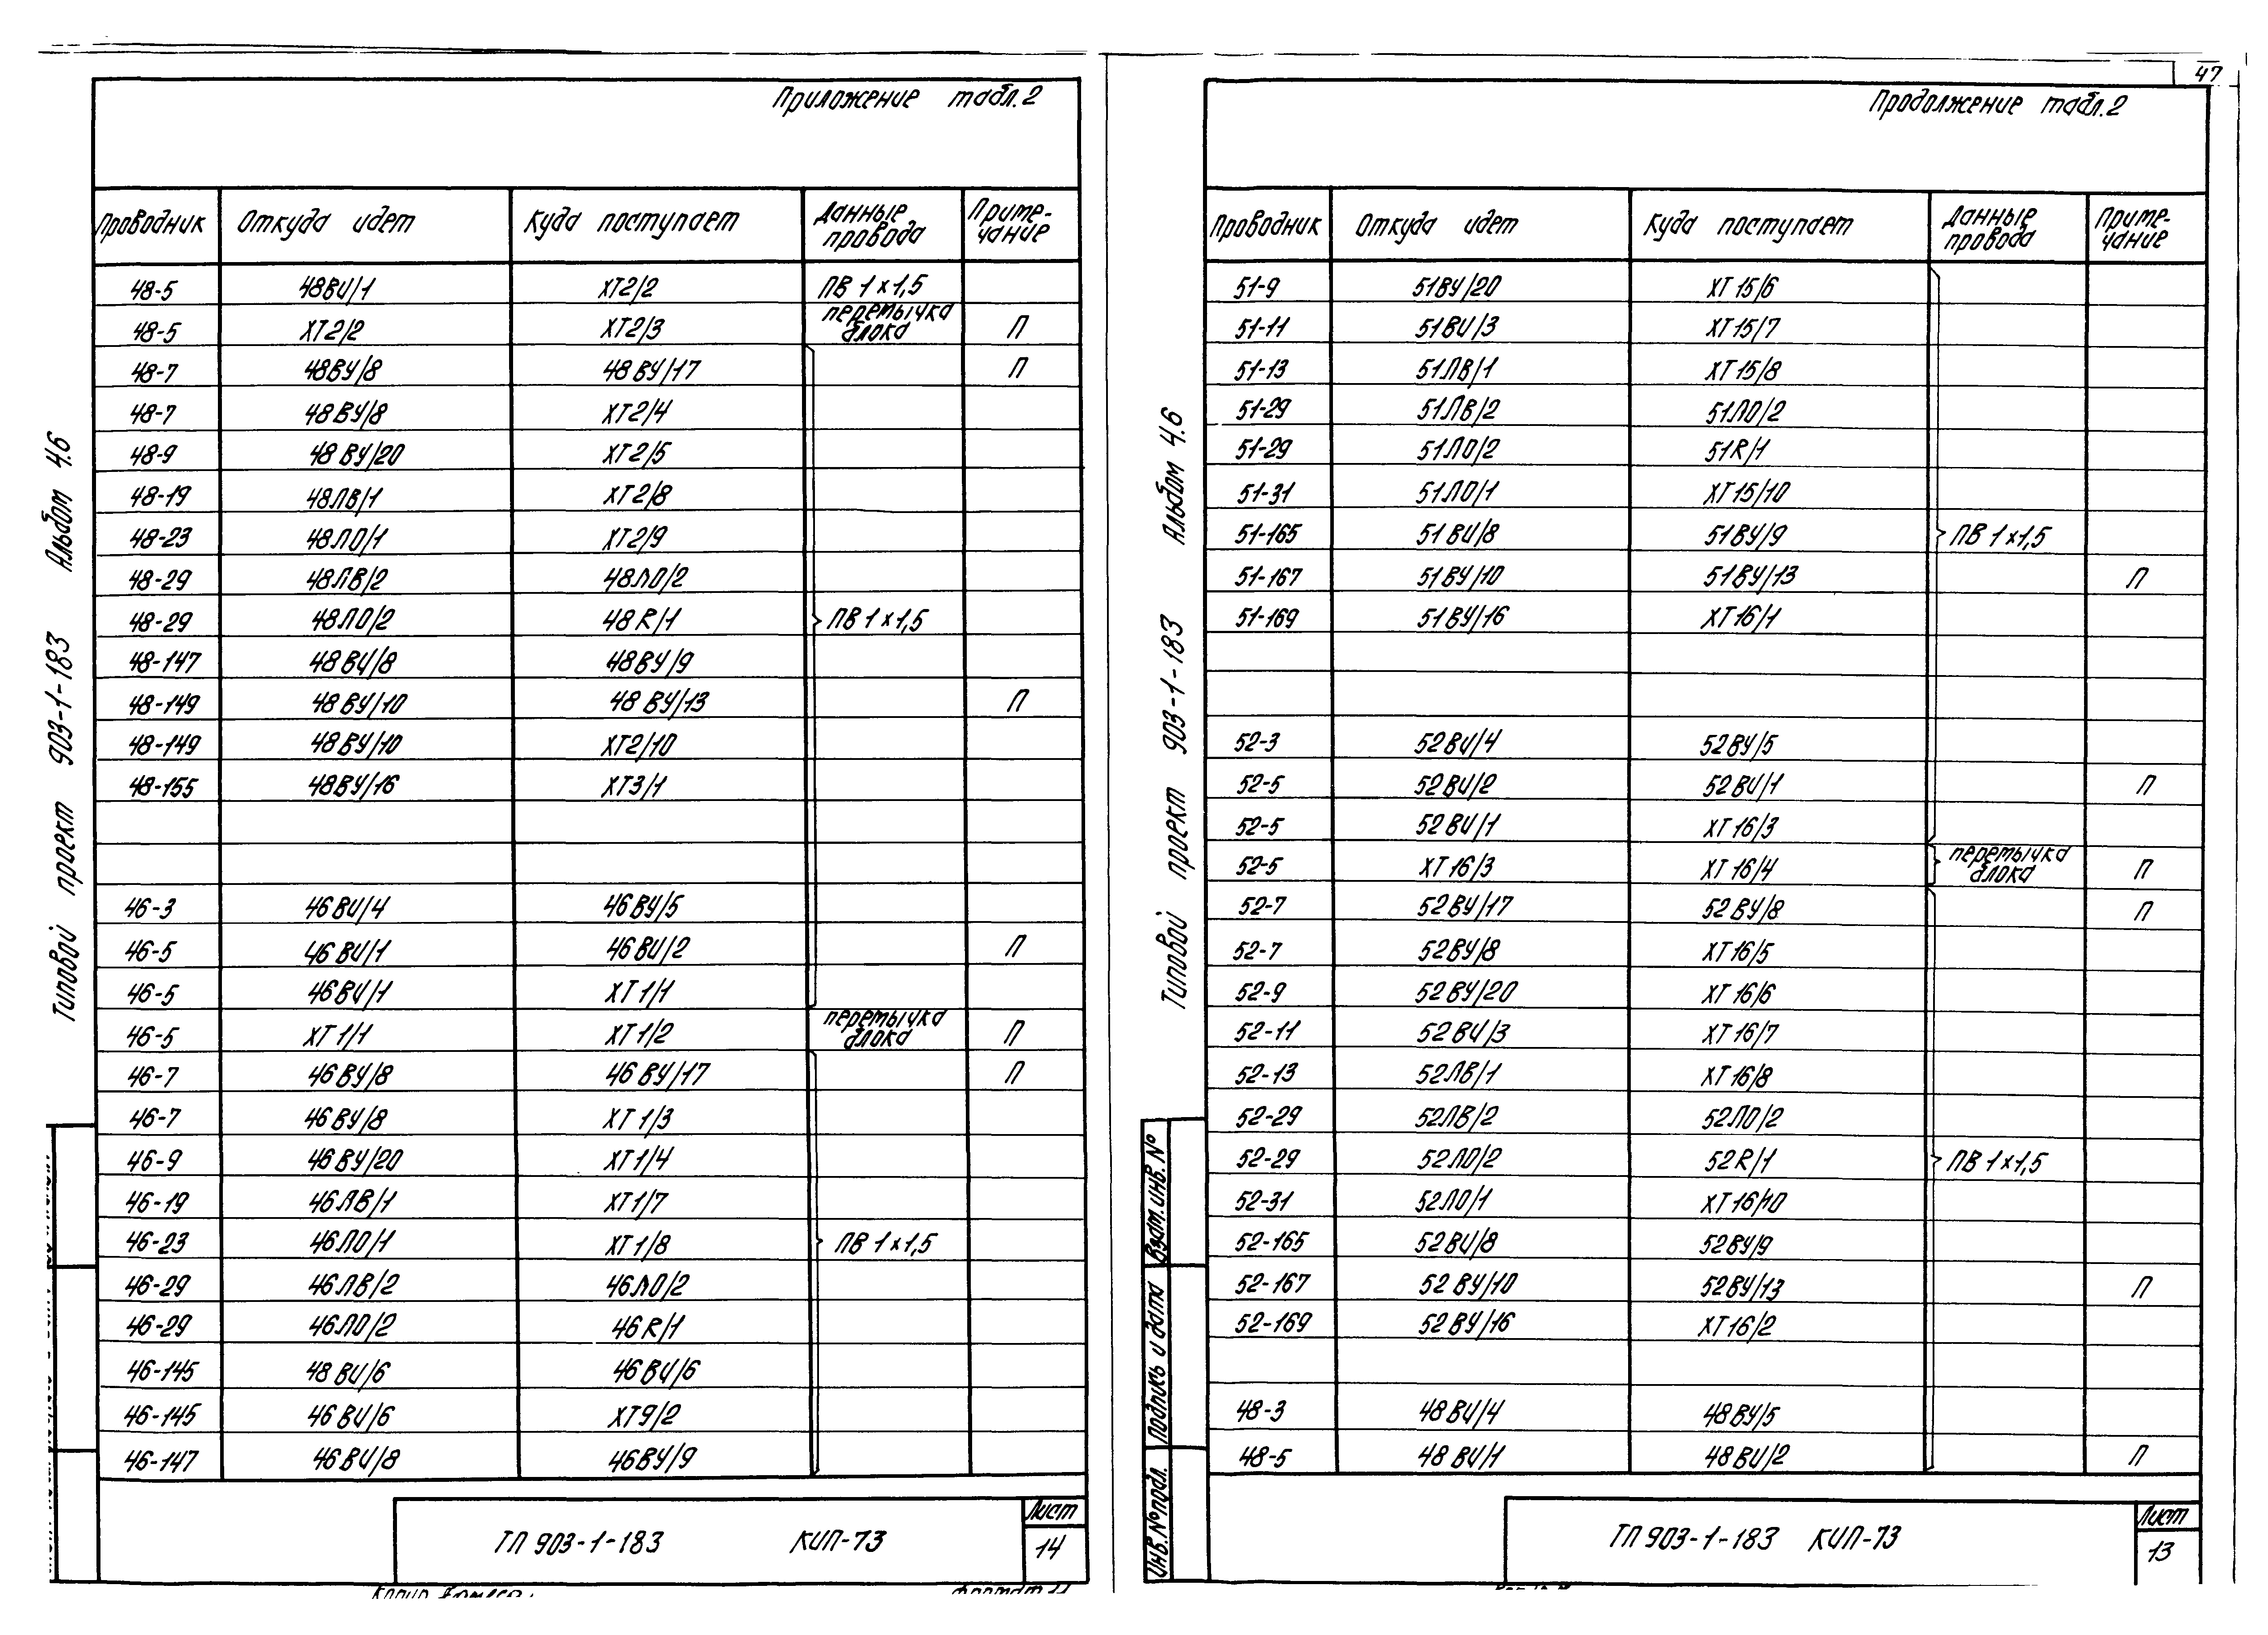 Приложение табл.2
Проводник Откуда идет Куда поступает Данные провода Приме-чание
48-5 48ВИ/1 ХТ2/2 ПВ 1×1,5
48-5 ХТ2/2 ХТ2/3 перемычка блока П
48-7 48ВУ/8 48ВУ/17 П
48-7 48ВУ/8 ХТ2/4
48-9 48ВУ/20 ХТ2/5
48-19 48ЛВ/1 ХТ2/8
48-23 48ЛО/1 ХТ2/9
48-29 48ЛВ/2 48ЛО/2
48-29 48ЛО/2 48R/1 ПВ 1×1,5
48-147 48ВИ/8 48ВУ/9
48-149 48ВУ/10 48ВУ/13 П
48-149 48ВУ/10 ХТ2/10
48-155 48ВУ/16 ХТ3/1
46-3 46ВИ/4 46ВУ/5
46-5 46ВИ/1 46ВИ/2 П
46-5 46ВИ/1 ХТ1/1
46-5 ХТ1/1 ХТ1/2 перемычка блока П
46-7 46ВУ/8 46ВУ/17 П
46-7 46ВУ/8 ХТ1/3
46-9 46ВУ/20 ХТ1/4
46-19 46ЛВ/1 ХТ1/7
46-23 46ЛО/1 ХТ1/8 ПВ 1×1,5
46-29 46ЛВ/2 46ЛО/2
46-29 46ЛО/2 46R/1
46-145 48ВИ/6 46ВИ/6
46-145 46ВИ/6 ХТ9/2
46-147 46ВИ/8 46ВУ/9
ТП 903-1-183 КИП-73
Лист
14
Типовой проект 903-1-183 Альбом 4.6
47
Продолжение табл.2
Проводник Откуда идет Куда поступает Данные провода Приме-чание
51-9 51ВУ/20 ХТ15/6
51-11 51ВИ/3 ХТ15/7
51-13 51ЛВ/1 ХТ15/8
51-29 51ЛВ/2 51ЛО/2
51-29 51ЛО/2 51R/1
51-31 51ЛО/1 ХТ15/10
51-165 51ВИ/8 51ВУ/9 ПВ 1×1,5
51-167 51ВУ/10 51ВУ/13 П
51-169 51ВУ/16 ХТ16/1
52-3 52ВИ/4 52ВУ/5
52-5 52ВИ/2 52ВИ/1 П
52-5 52ВИ/1 ХТ16/3
52-5 ХТ16/3 ХТ16/4 перемычка блока П
52-7 52ВУ/17 52ВУ/8 П
52-7 52ВУ/8 ХТ16/5
52-9 52ВУ/20 ХТ16/6
52-11 52ВИ/3 ХТ16/7
52-13 52ЛВ/1 ХТ16/8
52-29 52ЛВ/2 52ЛО/2
52-29 52ЛО/2 52R/1 ПВ 1×1,5
52-31 52ЛО/1 ХТ16/10
52-165 52ВИ/8 52ВУ/9
52-167 52ВУ/10 52ВУ/13 П
52-169 52ВУ/16 ХТ16/2
48-3 48ВИ/4 48ВУ/5
48-5 48ВИ/1 48ВИ/2 П
ТП 903-1-183 КИП-73
Лист
13
Типовой проект 903-1-183 Альбом 4.6
Инв.№ подл. Подпись и дата Взам.инв.№